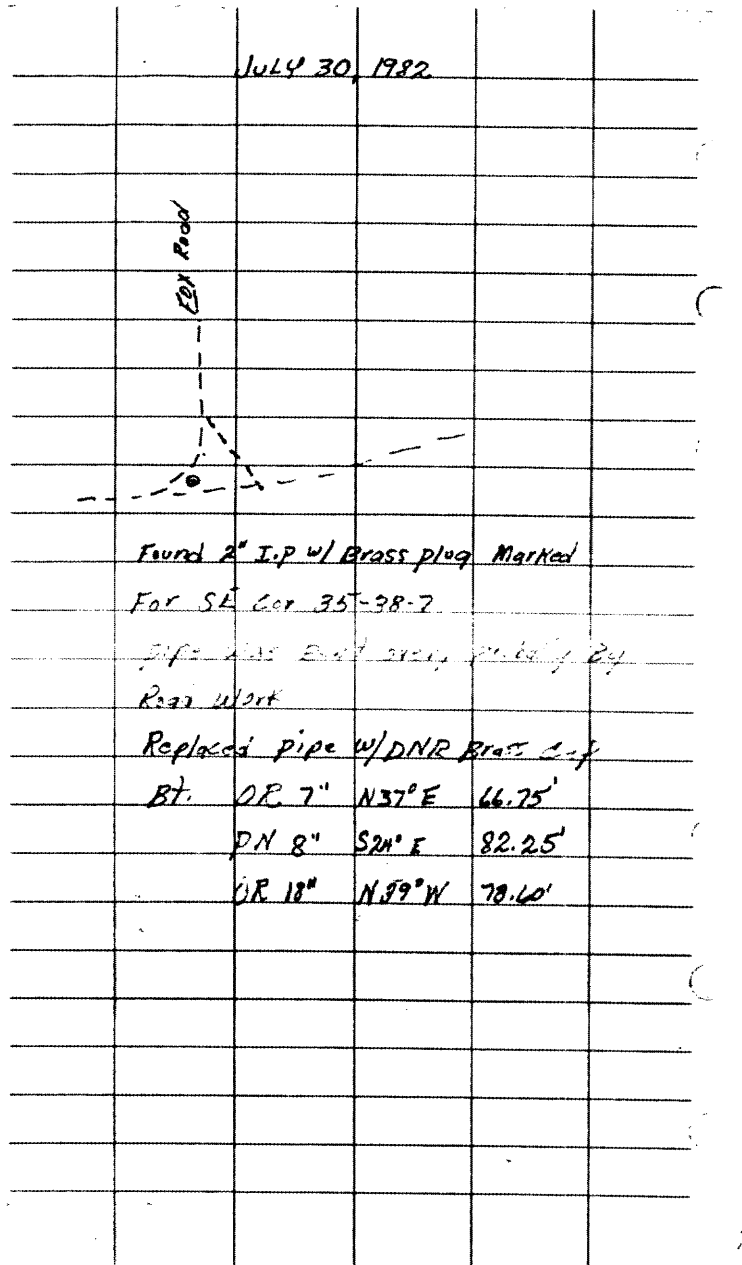 JULY 30, 1982
Fox Road
Found 2" I.P w/ Brass plug Marked
For SE Cor 35-38-7
pipe was Bent over, By
Road Work
Replaced pipe w/DNR Brass Cap
Bt. OR 7" N37°E 66.75'
PN 8" S24°E 82.25'
OR 18" N39°W 78.60'